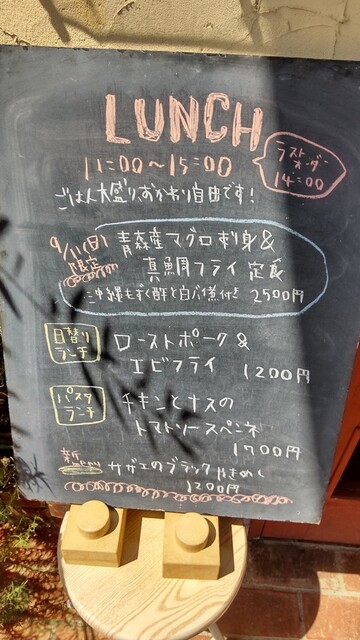 LUNCH
11:00～15:00
ラスト
オーダー
14:00
ごはん大盛り、おかわり自由です！
9/11(日)
限定
青森産マグロ刺身&
真鯛フライ定食
沖縄もずく酢と 付き 2500円
日替り
ランチ
ローストポーク&
エビフライ 1200円
パスタ
ランチ
チキンとナスの
トマトソースペンネ
1700円
新
サザエのブラック
1200円